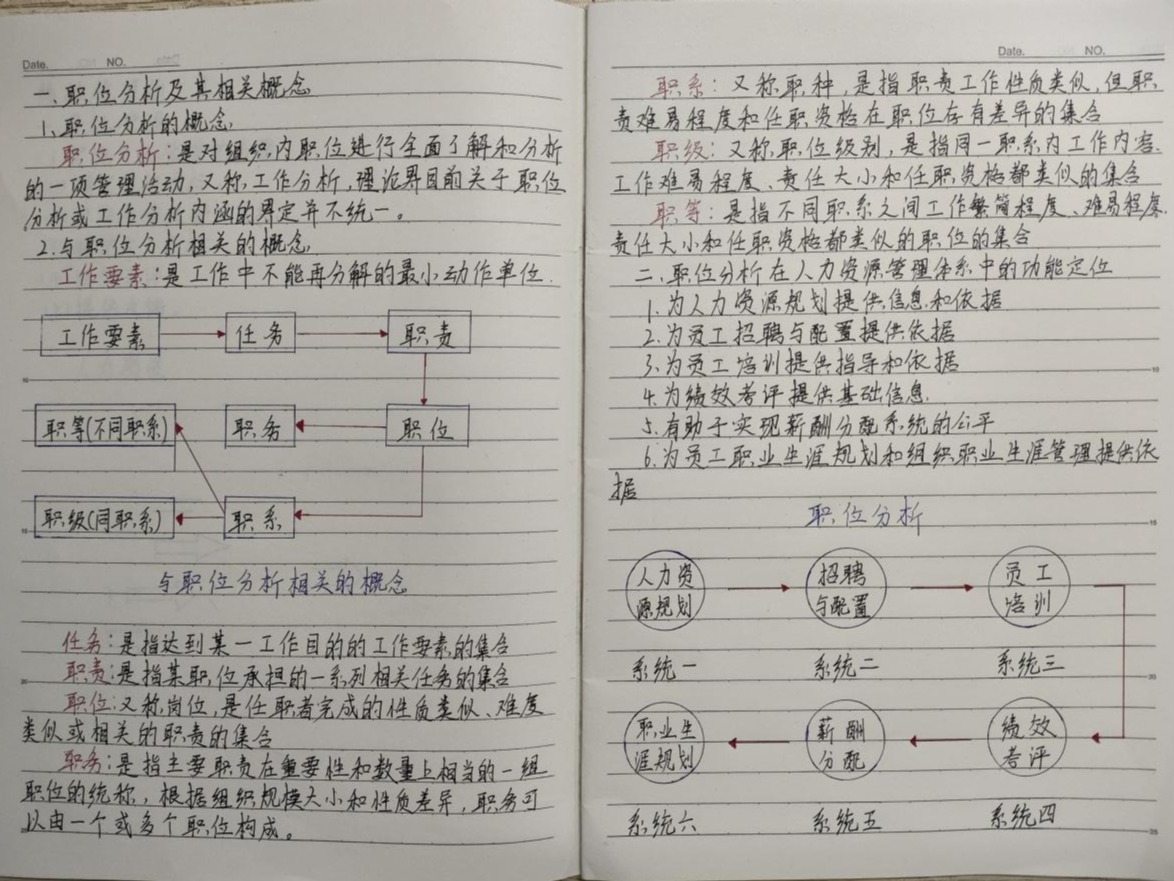 Date. NO.
一、职位分析及其相关概念
1、职位分析的概念
职位分析：是对组织内职位进行全面了解和分析
的一项管理活动，又称工作分析，理论界目前关于职位
分析或工作分析内涵的界定并不统一。
2.与职位分析相关的概念
工作要素：是工作中不能再分解的最小动作单位.
工作要素 任务 职责
职等(不同职系) 职务 职位
职级(同职系) 职系
与职位分析相关的概念
任务：是指达到某一工作目的的工作要素的集合
职责：是指某职位承担的一系列相关任务的集合
职位：又称岗位，是任职者完成的性质类似、难度
类似或相关的职责的集合
职务：是指主要职责在重要性和数量上相当的一组
职位的统称，根据组织规模大小和性质差异，职务可
以由一个或多个职位构成。
Date. NO.
职系：又称职种，是指职责工作性质类似，但职
责难易程度和任职资格在职位存有差异的集合
职级：又称职位级别，是指同一职系内工作内容、
工作难易程度、责任大小和任职资格都类似的集合
职等：是指不同职系之间工作繁简程度、难易程度、
责任大小和任职资格都类似的职位的集合
二、职位分析在人力资源管理体系中的功能定位
1.为人力资源规划提供信息和依据
2.为员工招聘与配置提供依据
3.为员工培训提供指导和依据
4.为绩效考评提供基础信息.
5.有助于实现薪酬分配系统的公平
6.为员工职业生涯规划和组织职业生涯管理提供依
据
职位分析
人力资 招聘 员工
源规划 与配置 培训
系统一 系统二 系统三
职业生 薪酬 绩效
涯规划 分配 考评
系统六 系统五 系统四